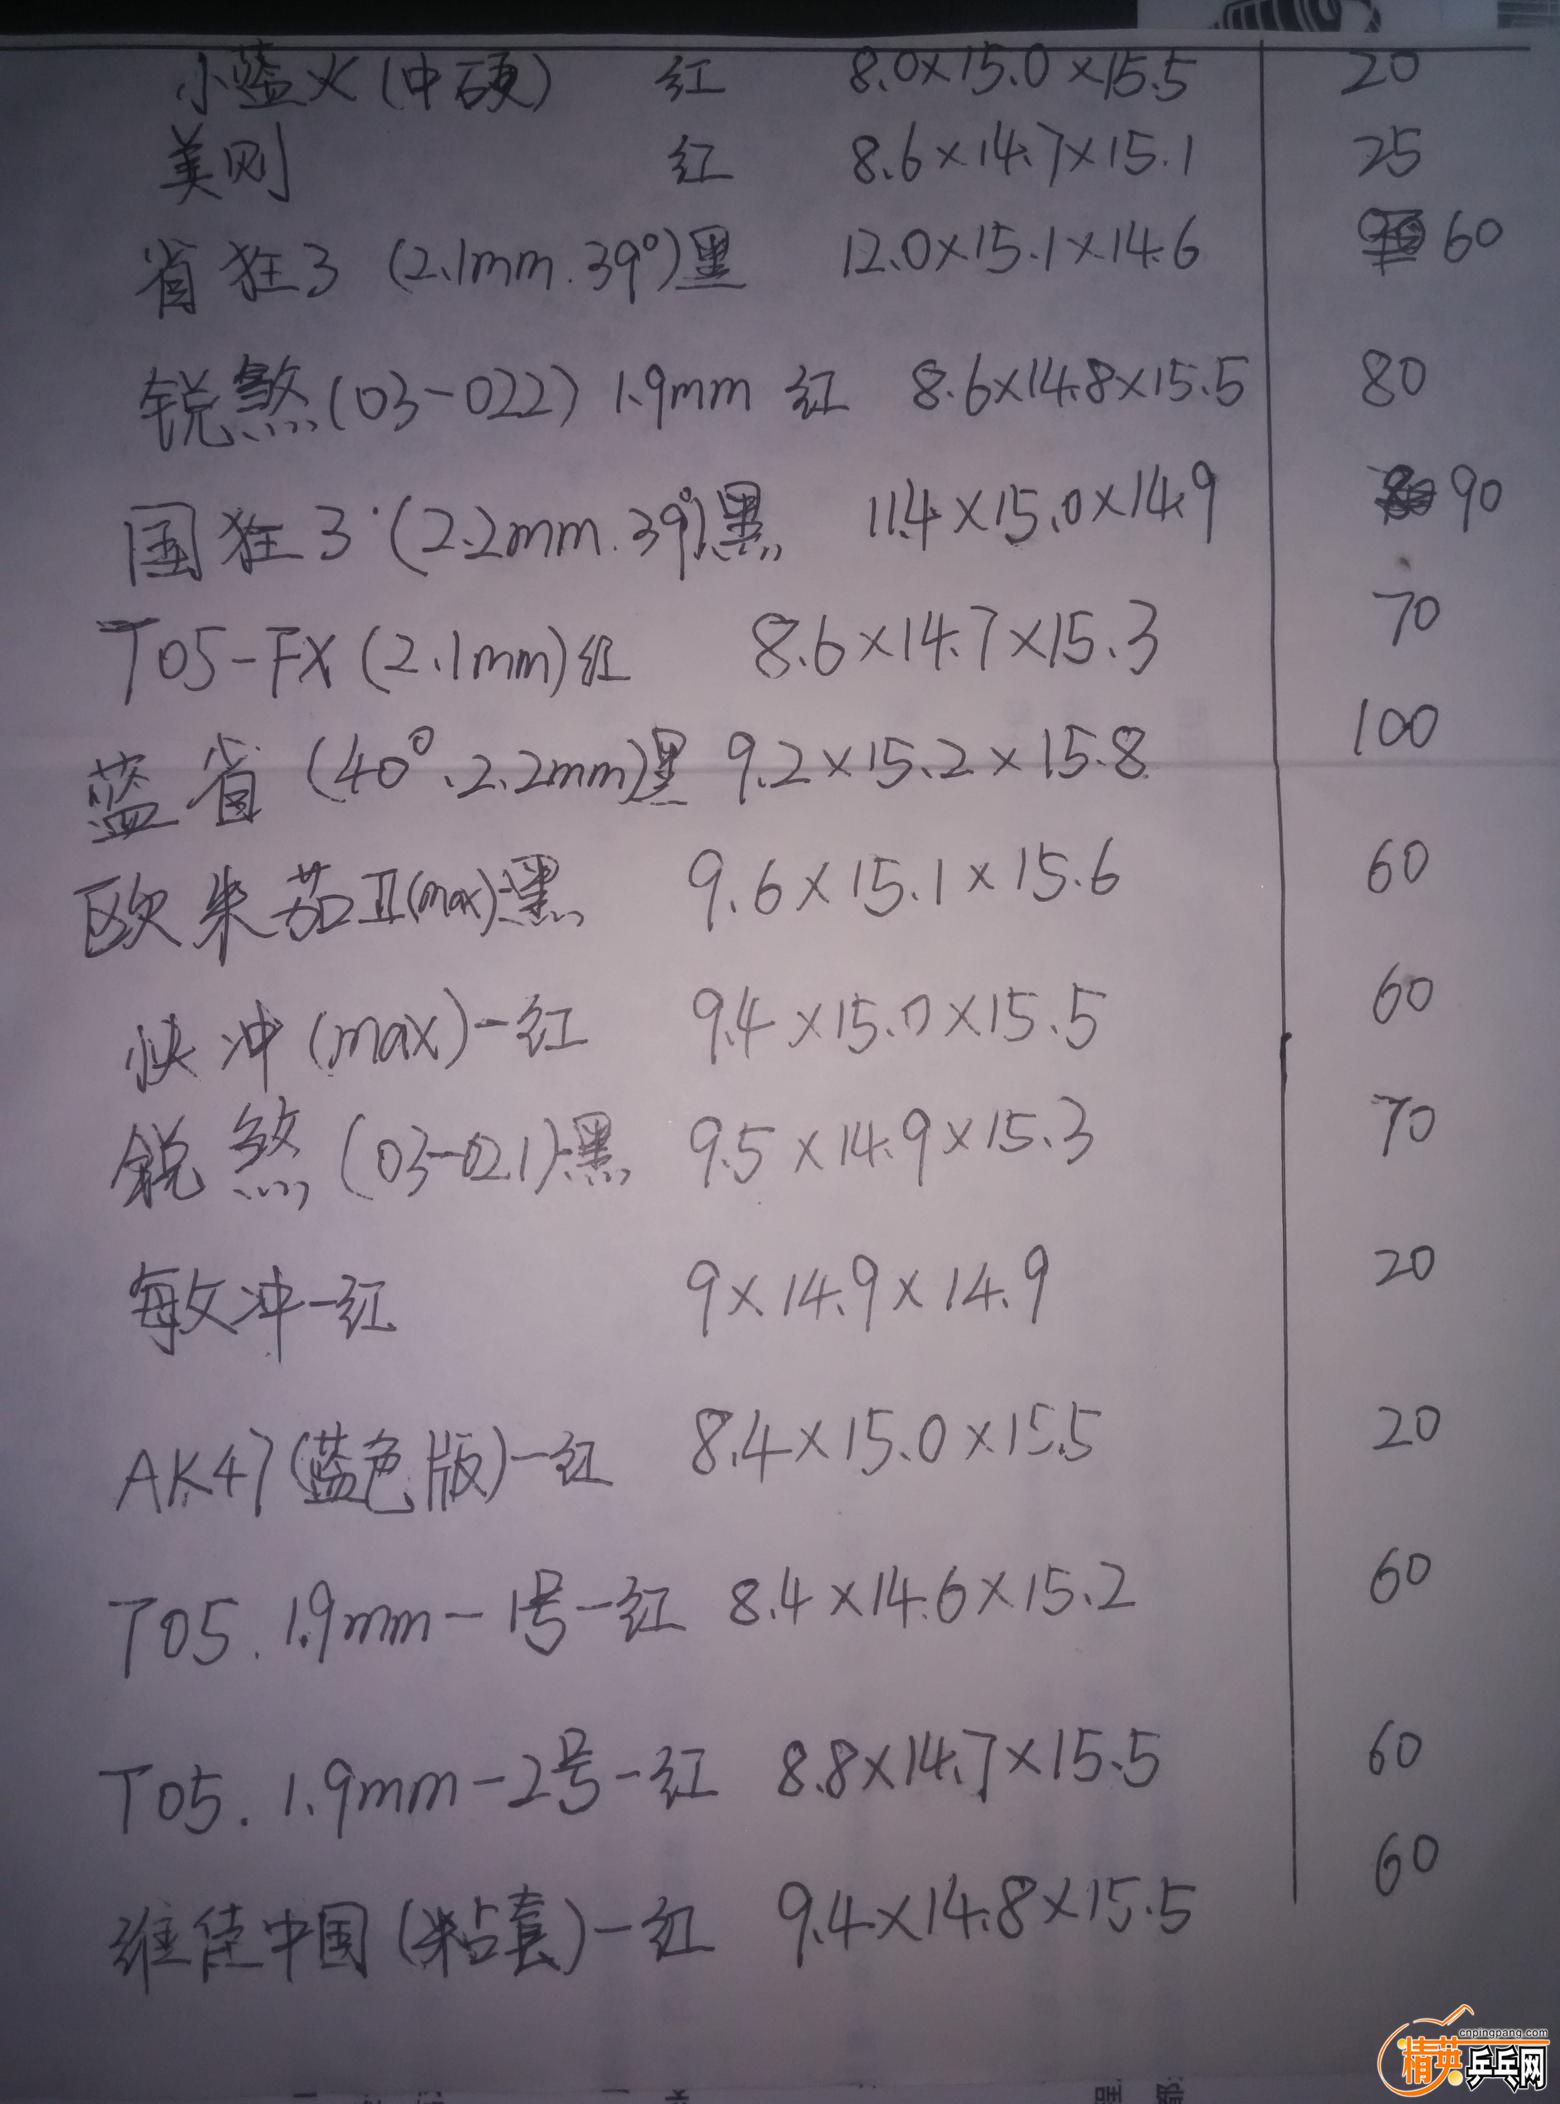 小蓝火(中硬) 红 8.0×15.0×15.5 20
美刚 红 8.6×14.7×15.1 25
省狂3 (2.1mm.39°)黑 12.0×15.1×14.6 60
锐煞(03-022) 1.9mm 红 8.6×14.8×15.5 80
国狂3·(2.2mm.39°)黑 11.4×15.0×14.9 90
T05-FX(2.1mm)红 8.6×14.7×15.3 70
蓝省(40°.2.2mm)黑 9.2×15.2×15.8 100
欧米茄II(max)-黑 9.6×15.1×15.6 60
快冲(max)-红 9.4×15.0×15.5 60
锐煞(03-021)-黑 9.5×14.9×15.3 70
敏冲-红 9×14.9×14.9 20
AK47(蓝色版)-红 8.4×15.0×15.5 20
T05.1.9mm-1号-红 8.4×14.6×15.2 60
T05.1.9mm-2号-红 8.8×14.7×15.5 60
维佳中国(粘套)-红 9.4×14.8×15.5 60
cnpingpang.com
精英乒乓网